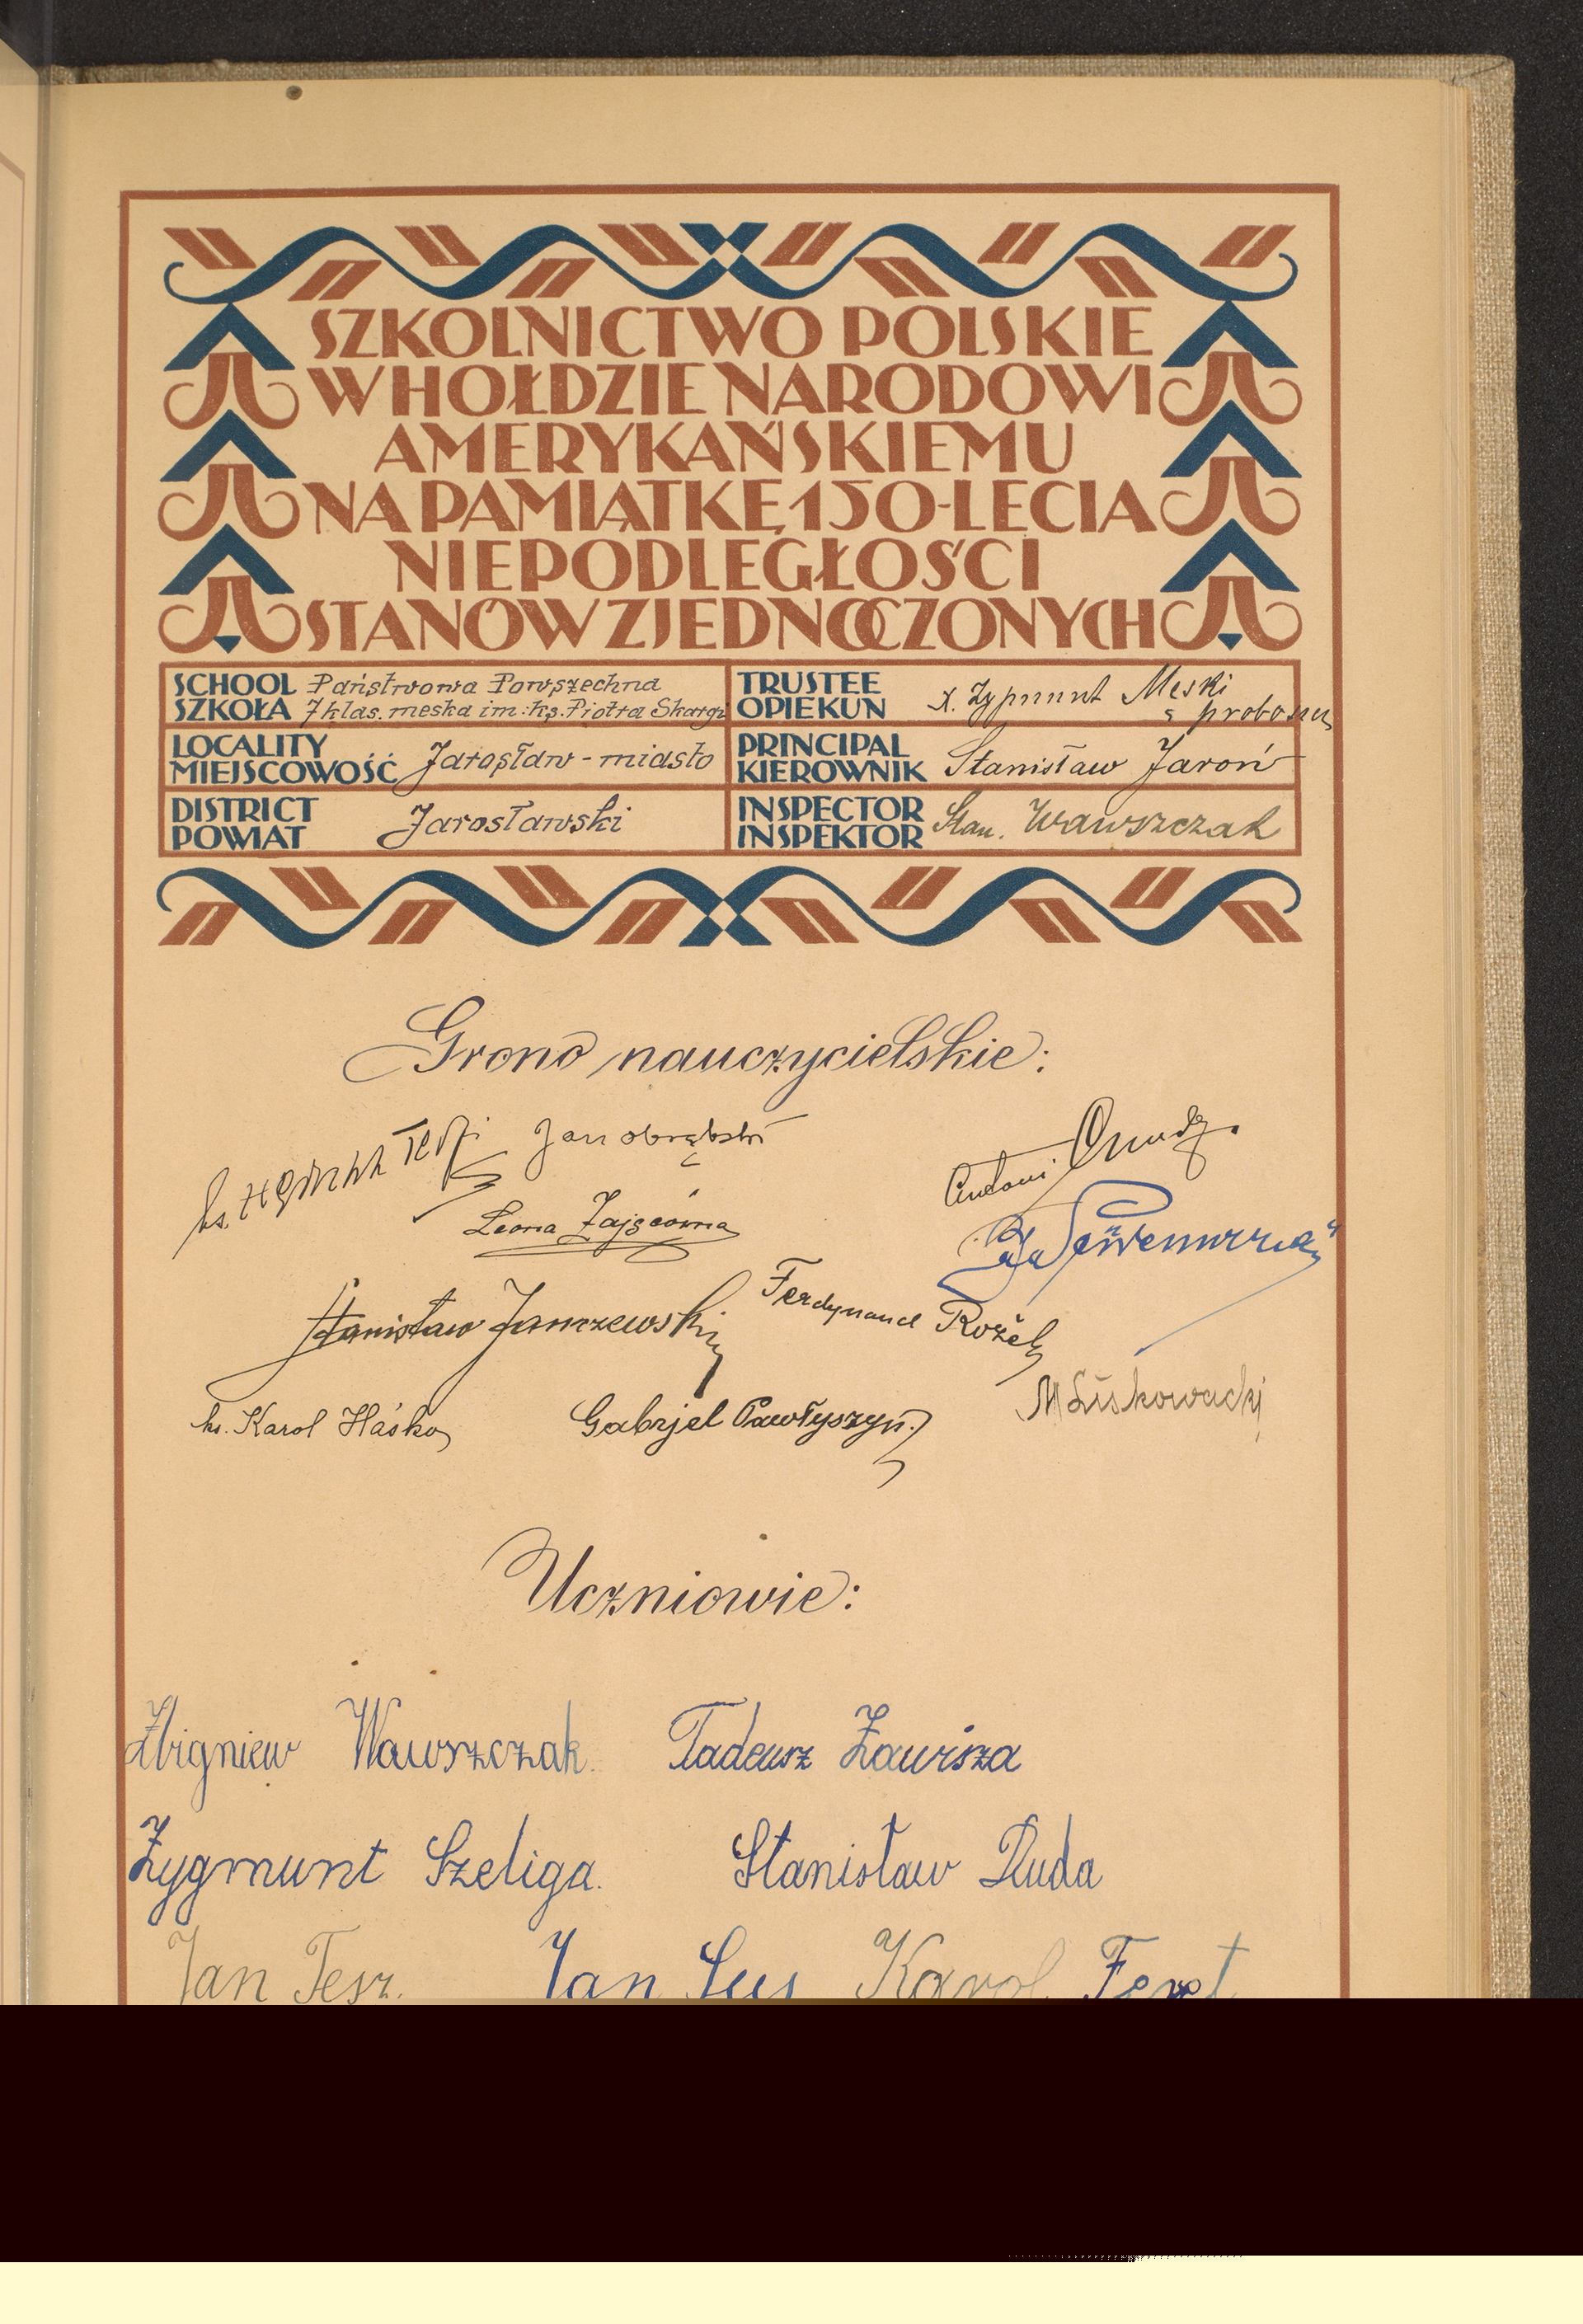 SZKOLNICTWO POLSKIE
W HOŁDZIE NARODOWI
AMERYKAŃSKIEMU
NA PAMIĄTKĘ 150-LECIA
NIEPODLEGŁOŚCI
STANÓW ZJEDNOCZONYCH
SCHOOL Państwowa Powszechna
SZKOŁA 7 klas. męska im: ks. Piotra Skargi
TRUSTEE
OPIEKUN X. Zygmunt Męski proboszcz
LOCALITY
MIEJSCOWOŚĆ Jarosław - miasto
PRINCIPAL
KIEROWNIK Stanisław Jaroń
DISTRICT
POWIAT Jarosławski
INSPECTOR
INSPEKTOR Stan. Wawszczak
Grono nauczycielskie:
ks. Jan Obrębski
Antoni
Leona Zającówna
Stanisław Janczewski Ferdynand Rożek
ks. Karol Haśko Gabrjel Pawłyszyn. M Liskowacki
Uczniowie:
Zbigniew Wawszczak. Tadeusz Zawisza
Zygmunt Szeliga. Stanisław Duda
Jan Tesz. Jan Sus Karol Feret